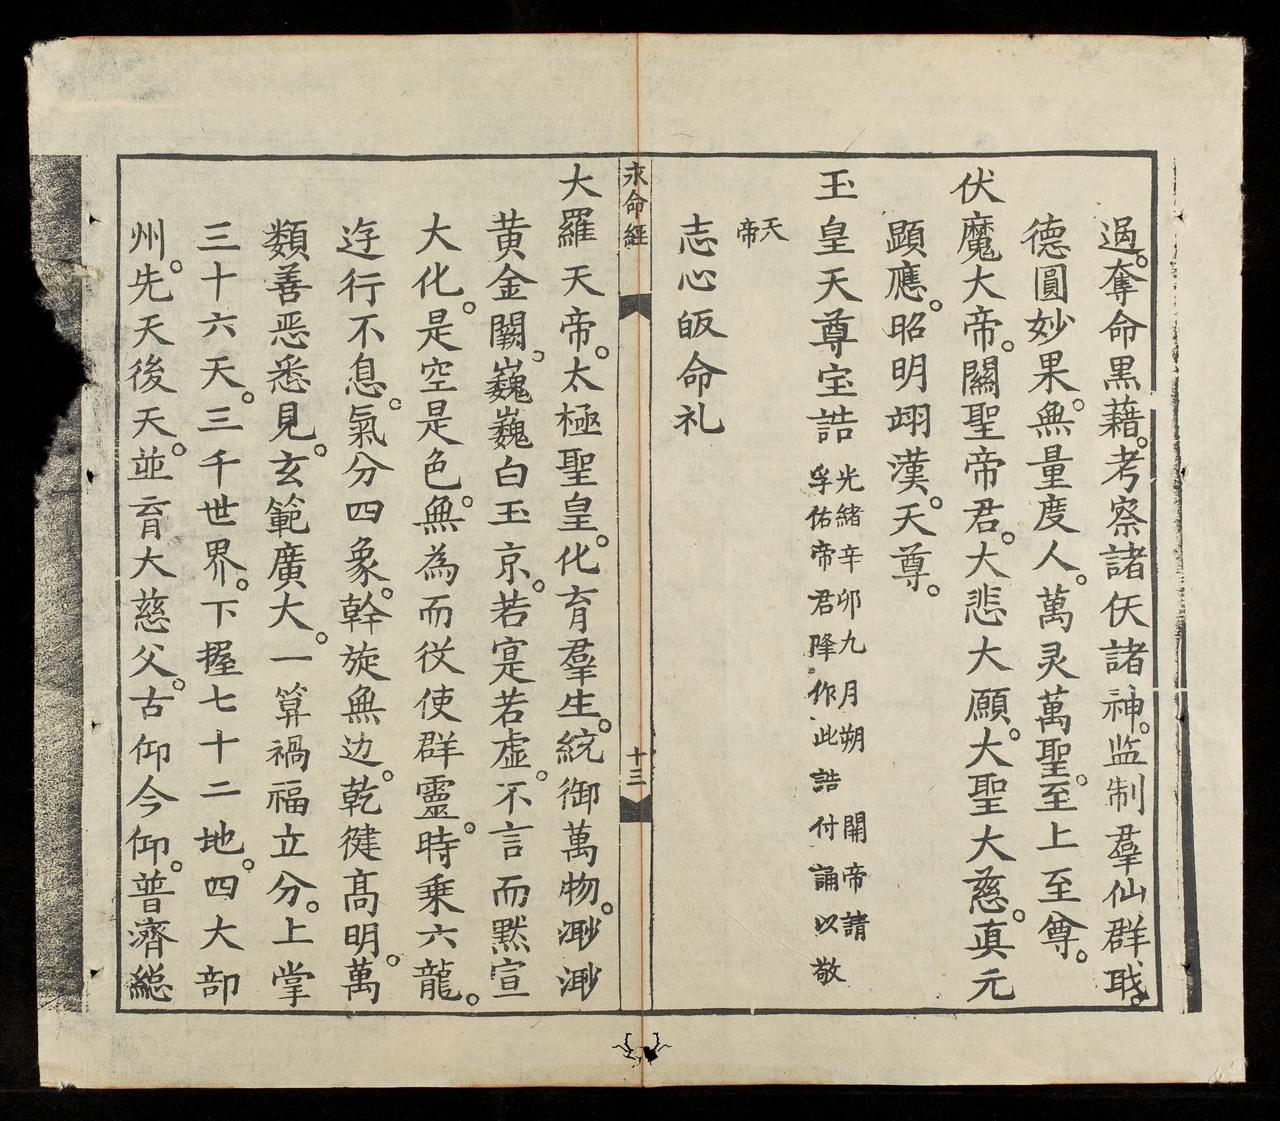 過。奪命黑藉。考察諸仸諸神。监制羣仙群戢。
德圓妙果。無量度人。萬灵萬聖。至上至尊。
伏魔大帝。關聖帝君。大悲大願。大聖大慈。真元
顕應。昭明翊漢。天尊。
玉皇天尊宝誥
光緒辛夘九月朔 關帝請
孚佑帝君降作此誥付誦以敬
天
帝
志心皈命礼
永命經
十三
大羅天帝。太極聖皇。化育羣生。統御萬物。渺渺
黄金闕。巍巍白玉京。若寔若虚。不言而黙宣
大化。是空是色。無為而役使群靈。時乗六龍。
逰行不息。氣分四象。幹旋無边。乾健髙明。萬
類善恶悉見。玄範廣大。一算禍福立分。上掌
三十六天。三千世界。下握七十二地。四大部
州。先天後天。並育大慈父。古仰今仰。普濟緫